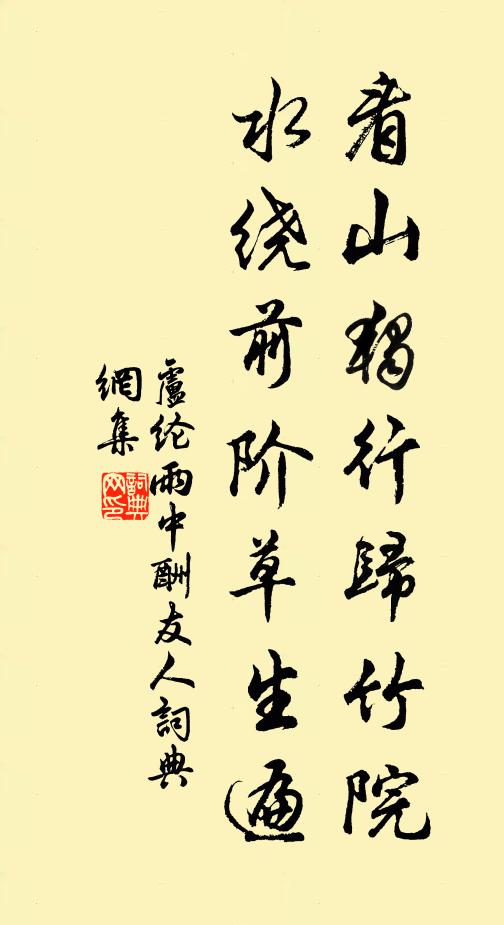 看山獨行歸竹院
水绕前阶草生遍
盧纶雨中酬友人詞典
網集
詞典
网印